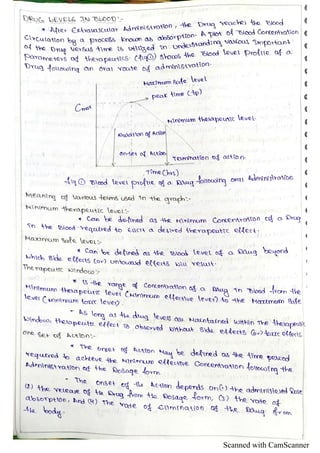 DRUG LEVELS IN BLOOD:-
* After Extravascular Administration, the Drug reaches the Blood
Circulation by a process known as absorption. A plot of Blood Concentration
of the Drug versus time is utilized in understanding various Important
parameters of therapeutics. (fig①) shows the Blood level profile of a
Drug following an oral route of administration.
Maximum Safe level
Cmax
peak time (tp)
Minimum therapeutic level
Duration of Action
onset of Action
Termination of action
Time (hrs)
fig ① Blood level profile of a Drug following oral Administration
Meaning of various terms used in the graph:-
Minimum therapeutic level:-
* Can be defined as the Minimum Concentration of a Drug
in the Blood required to exert a desired therapeutic effect.
Maximum Safe level:-
* Can be defined as the Blood level of a Drug beyond
which Side effects (or) untoward effects will result.
Therapeutic Window:-
* Is the range of Concentration of a Drug in Blood from the
Minimum therapeutic level (Minimum effective level) to the Maximum Safe
level (minimum toxic level).
- As long as the drug levels are Maintained within the therapeutic
window therapeutic effect is observed without Side effects (or) toxic effects
Onset of Action:-
* The onset of Action May be defined as the time period
required to achieve the Minimum effective Concentration following the
Administration of the Dosage form
- The onset of the Action depends on (1) the administered Dose
(2) the release of the Drug from the Dosage form, (3) the rate of
absorption, And (4) the rate of elimination of the Drug from
the body.
Scanned with CamScanner